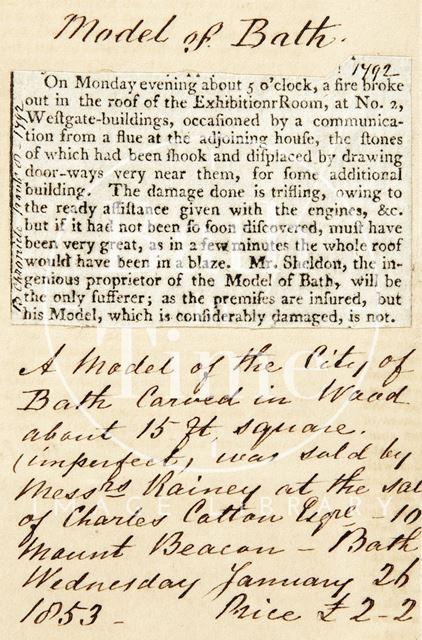 Model of Bath.
1792
On Monday evening about 5 o'clock, a fire broke
out in the roof of the ExhibitionrRoom, at No. 2,
Weſtgate-buildings, occaſioned by a communica-
tion from a flue at the adjoining houſe, the ſtones
of which had been ſhook and diſplaced by drawing
door-ways very near them, for ſome additional
building. The damage done is trifling, owing to
the ready aſſiſtance given with the engines, &c.
but if it had not been ſo ſoon diſcovered, muſt have
been very great, as in a few minutes the whole roof
would have been in a blaze. Mr. Sheldon, the in-
genious proprietor of the Model of Bath, will be
the only ſufferer; as the premiſes are inſured, but
his Model, which is conſiderably damaged, is not.
Chronicle 1792
A Model of the City of
Bath Carved in Wood
about 15 ft square.
(imperfect) was sold by
Messrs Rainey at the sal
of Charles Cotton Esqre - 10
Mount Beacon - Bath
Wednesday January 26
1853 - Price £2-2
Bath in Time
IMAGE LIBRARY